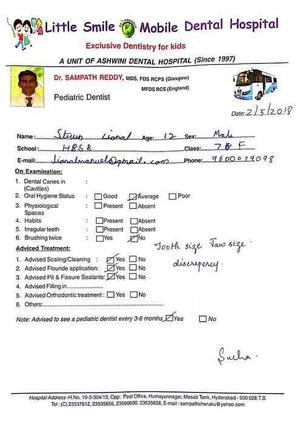 Little Smile Mobile Dental Hospital
Exclusive Dentistry for kids
A UNIT OF ASHWINI DENTAL HOSPITAL (Since 1997)
Dr. SAMPATH REDDY, MDS, FDS RCPS (Glasgow)
MFDS RCS (England)
Pediatric Dentist
Date: 2/5/2018
Name: Steven Lional Age: 12 Sex: Male
School: Class: 7
E-mail: Phone:
On Examination:
1. Dental Caries in :
(Cavities)
2. Oral Hygiene Status : Good Average Poor
3. Physiological : Present Absent
Spaces
4. Habits : Present Absent
5. Irregular teeth : Present Absent
6. Brushing twice : Yes No
Tooth size Jaw size
discrepency.
Advised Treatment:
1. Advised Scaling/Cleaning : Yes No
2. Advised Flouride application: Yes No
3. Advised Pit & Fissure Sealants: Yes No
4. Advised Filling in
5. Advised Orthodontic treatment : Yes No
6. Others:
Note: Advised to see a pediatric dentist every 3-6 months Yes No
Hospital Address: H.No. 10-3-304/13, Opp: Post Office, Humayunnagar, Masab Tank, Hyderabad - 500-028 T.S.
Tel : (C) 23537612, 23535656, 23590690. 23535658, E-mail : sampathcheruku@yahoo.com